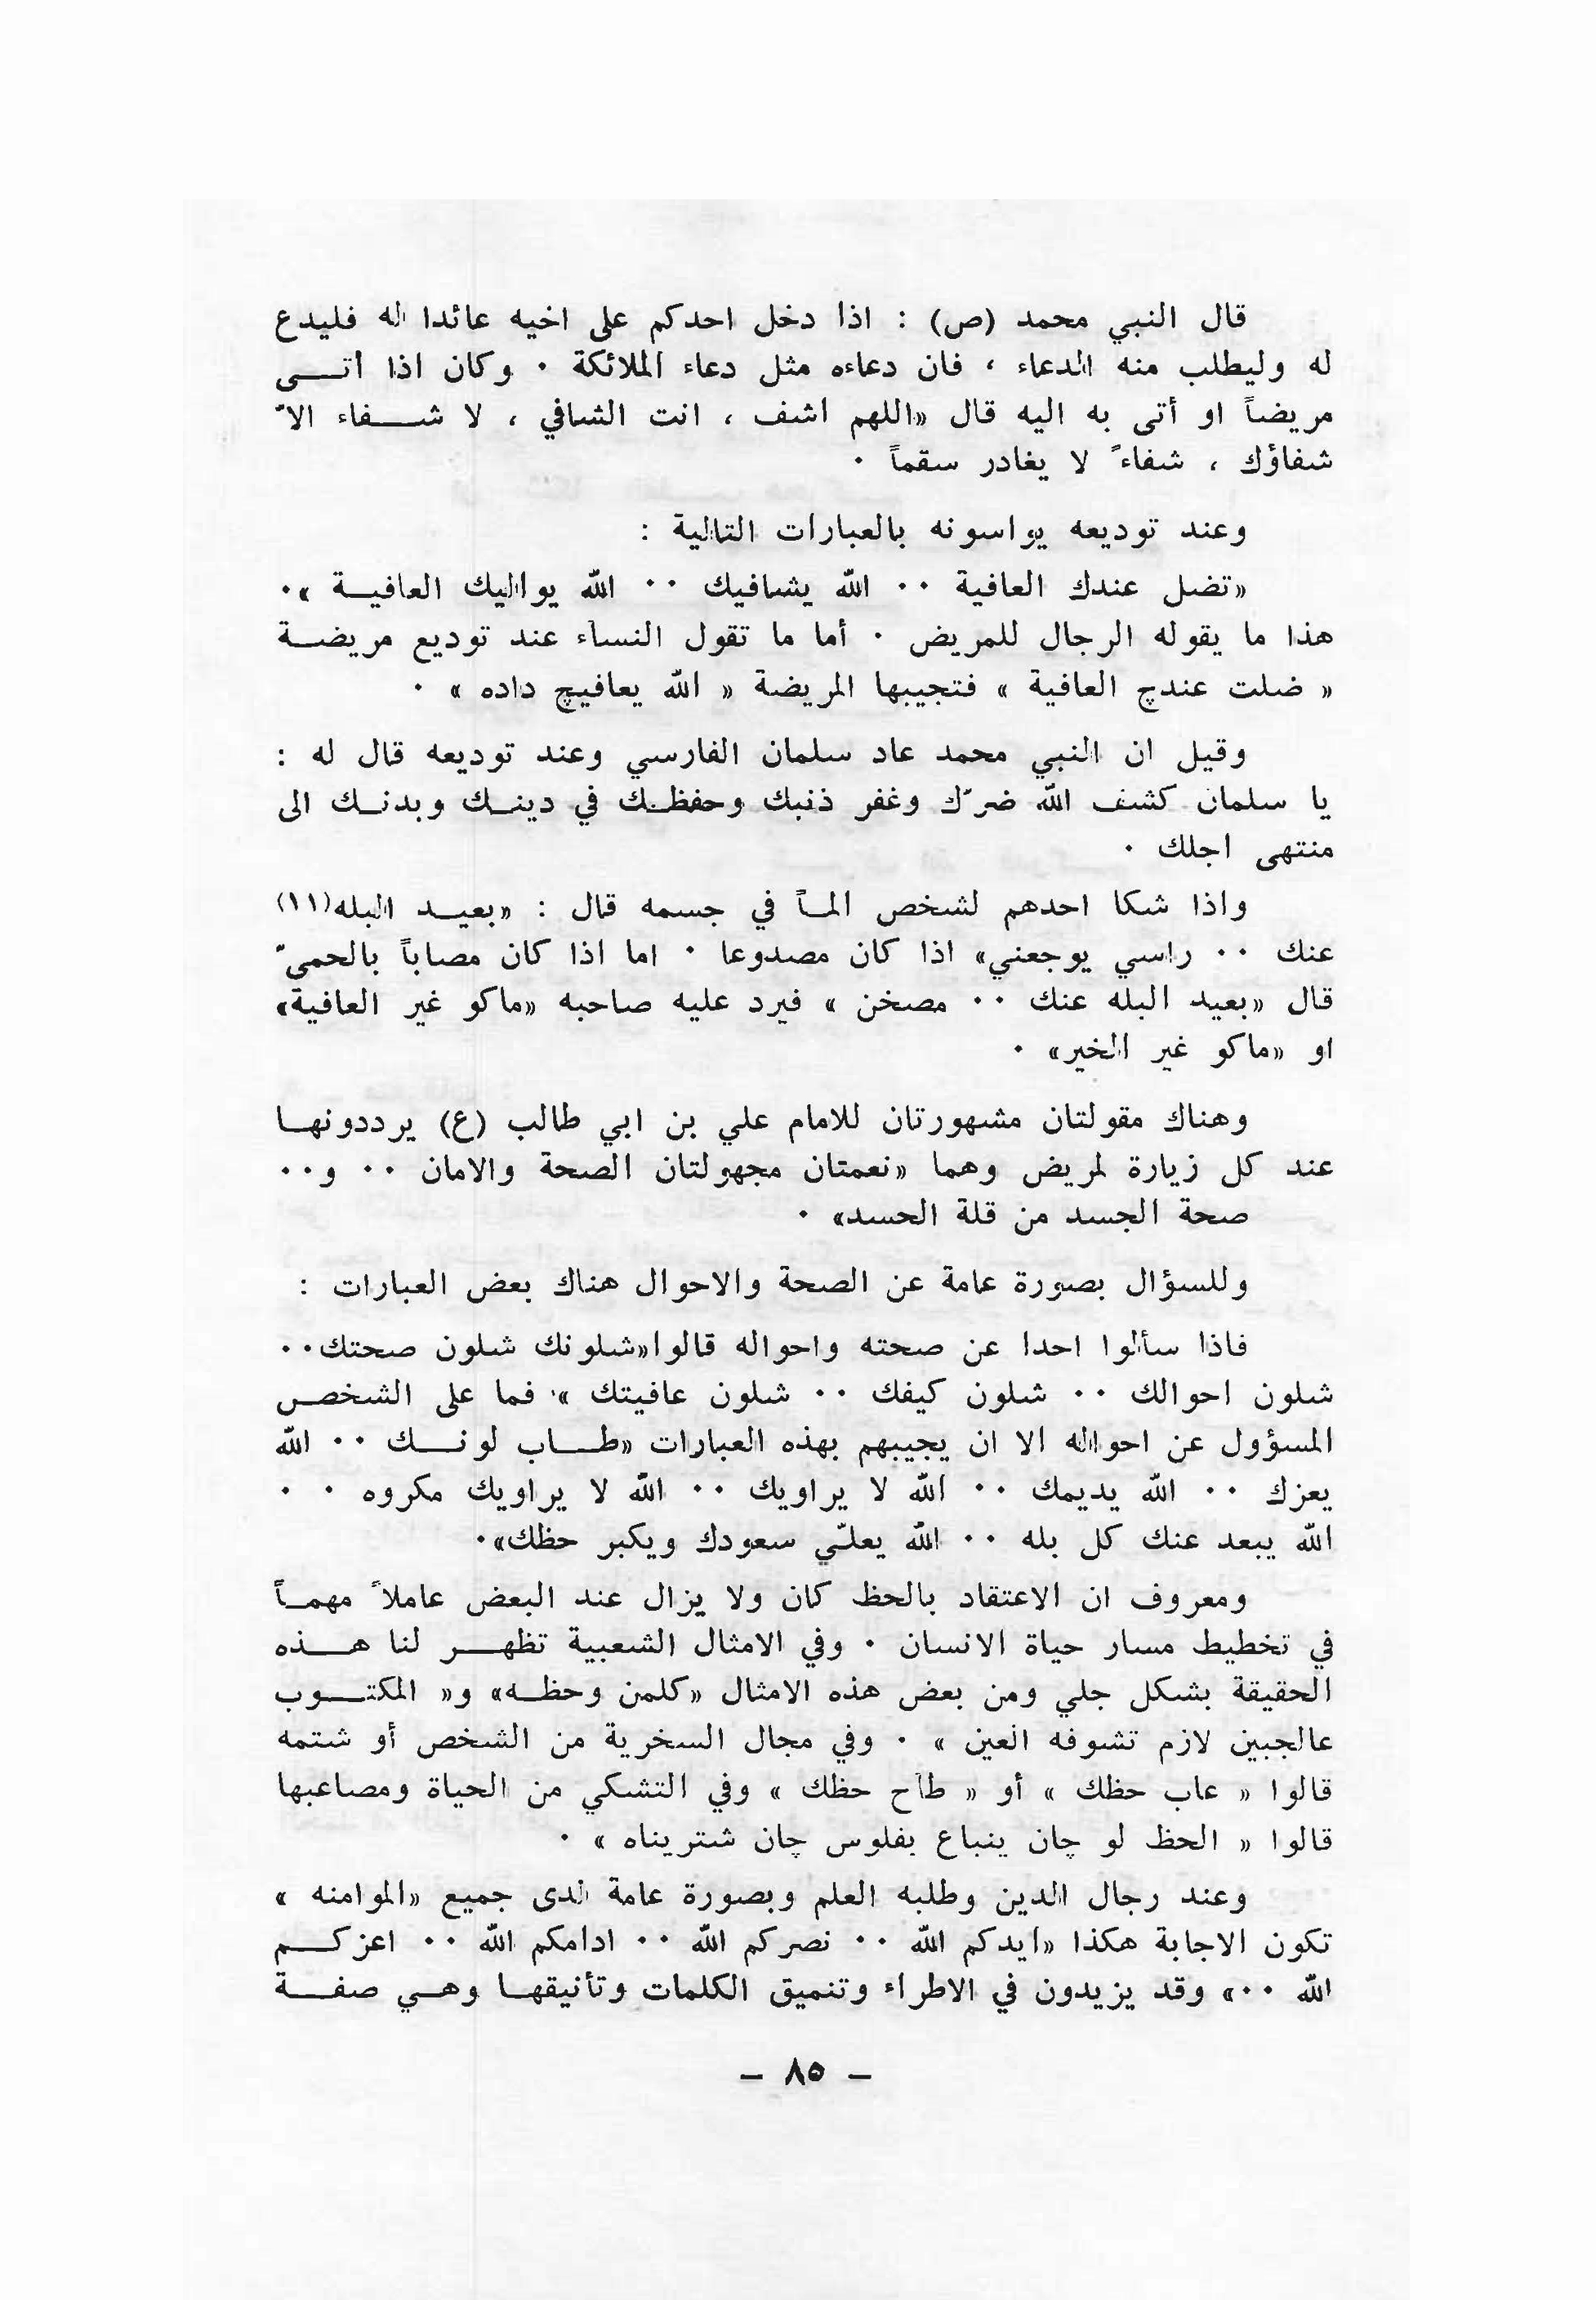 قال النبي محمد (ص) : اذا دخل احدكم على اخيه عائدا له فليدع
له وليطلب منه الدعاء ، فان دعاءه مثل دعاء الملائكة ٠ وكان اذا اتى
مريضاً او أتى به اليه قال «اللهم اشف ، انت الشافي ، لا شفاء الاّ
شفاؤك ، شفاءً لا يغادر سقماً ٠
وعند توديعه يواسونه بالعبارات التالية :
«تضل عندك العافية ٠٠ الله يشافيك ٠٠ الله يواليك العافية »٠
هذا ما يقوله الرجال للمريض ٠ أما ما تقول النساء عند توديع مريضة
« ضلت عندچ العافية » فتجيبها المريضة « الله يعافيچ داده » ٠
وقيل ان النبي محمد عاد سلمان الفارسي وعند توديعه قال له :
يا سلمان كشف الله ضرّك وغفر ذنبك وحفظك في دينك وبدنك الى
منتهى اجلك ٠
واذا شكا احدهم لشخص الماً في جسمه قال : «بعيد البله(١١)
عنك ٠٠ راسي يوجعني» اذا كان مصدوعا ٠ اما اذا كان مصاباً بالحمىّ
قال «بعيد البله عنك ٠٠ مصخن » فيرد عليه صاحبه «ماكو غير العافية»
او «ماكو غير الخير» ٠
وهناك مقولتان مشهورتان للامام علي بن ابي طالب (ع) يرددونها
عند كل زيارة لمريض وهما «نعمتان مجهولتان الصحة والامان ٠٠ و٠٠
صحة الجسد من قلة الحسد» ٠
وللسؤال بصورة عامة عن الصحة والاحوال هناك بعض العبارات :
فاذا سألوا احدا عن صحته واحواله قالوا«شلونك شلون صحتك٠٠
شلون احوالك ٠٠ شلون كيفك ٠٠ شلون عافيتك »٠ فما على الشخص
المسؤول عن احواله الا ان يجيبهم بهذه العبارات «طاب لونك ٠٠ الله
يعزك ٠٠ الله يديمك ٠٠ الله لا يراويك ٠٠ الله لا يراويك مكروه ٠ ٠
الله يبعد عنك كل بله ٠٠ الله يعلّي سعودك ويكبر حظك»٠
ومعروف ان الاعتقاد بالحظ كان ولا يزال عند البعض عاملاً مهماً
في تخطيط مسار حياة الانسان ٠ وفي الامثال الشعبية تظهر لنا هذه
الحقيقة بشكل جلي ومن بعض هذه الامثال «كلمن وحظه» و« المكتوب
عالجبين لازم تشوفه العين » ٠ وفي مجال السخرية من الشخص أو شتمه
قالوا « عاب حظك » أو « طاح حظك » وفي التشكي من الحياة ومصاعبها
قالوا « الحظ لو چان ينباع بفلوس چان شتريناه » ٠
وعند رجال الدين وطلبه العلم وبصورة عامة لدى جميع «الموامنه »
تكون الاجابة هكذا «ايدكم الله ٠٠ نصركم الله ٠٠ ادامكم الله ٠٠ اعزكم
الله ٠٠» وقد يزيدون في الاطراء وتنميق الكلمات وتأنيقها وهي صفة
– ٨٥ –